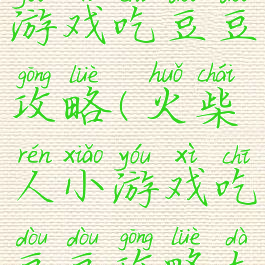 游戏吃豆豆
gōng lüè huǒ chái
攻略(火柴
rén xiǎo yóu xì chī
人小游戏吃
dòu dòu gōng lüè dà